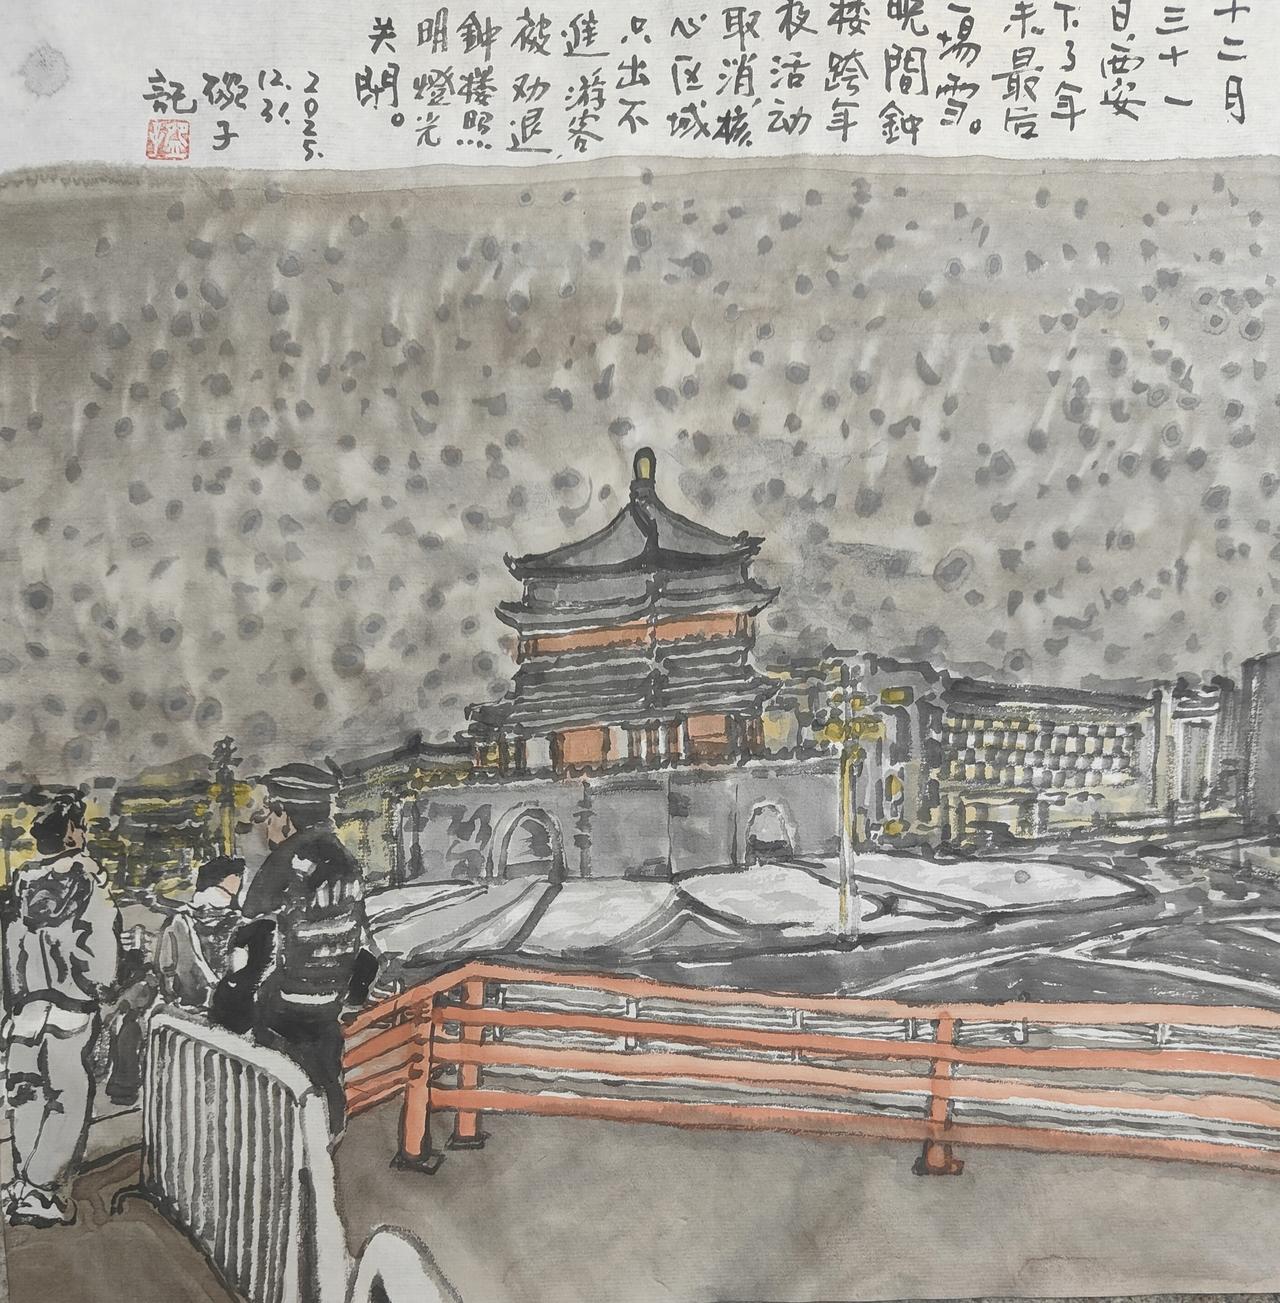 十二月
三十一
日，西安
下了年
末最后
一場雪。
晚間鈡
楼跨年
夜活动
取消，核
心区域
只出不
進，游客
被劝退，
鈡楼照
明燈光
关閉。
2025.
12.31.
子
記